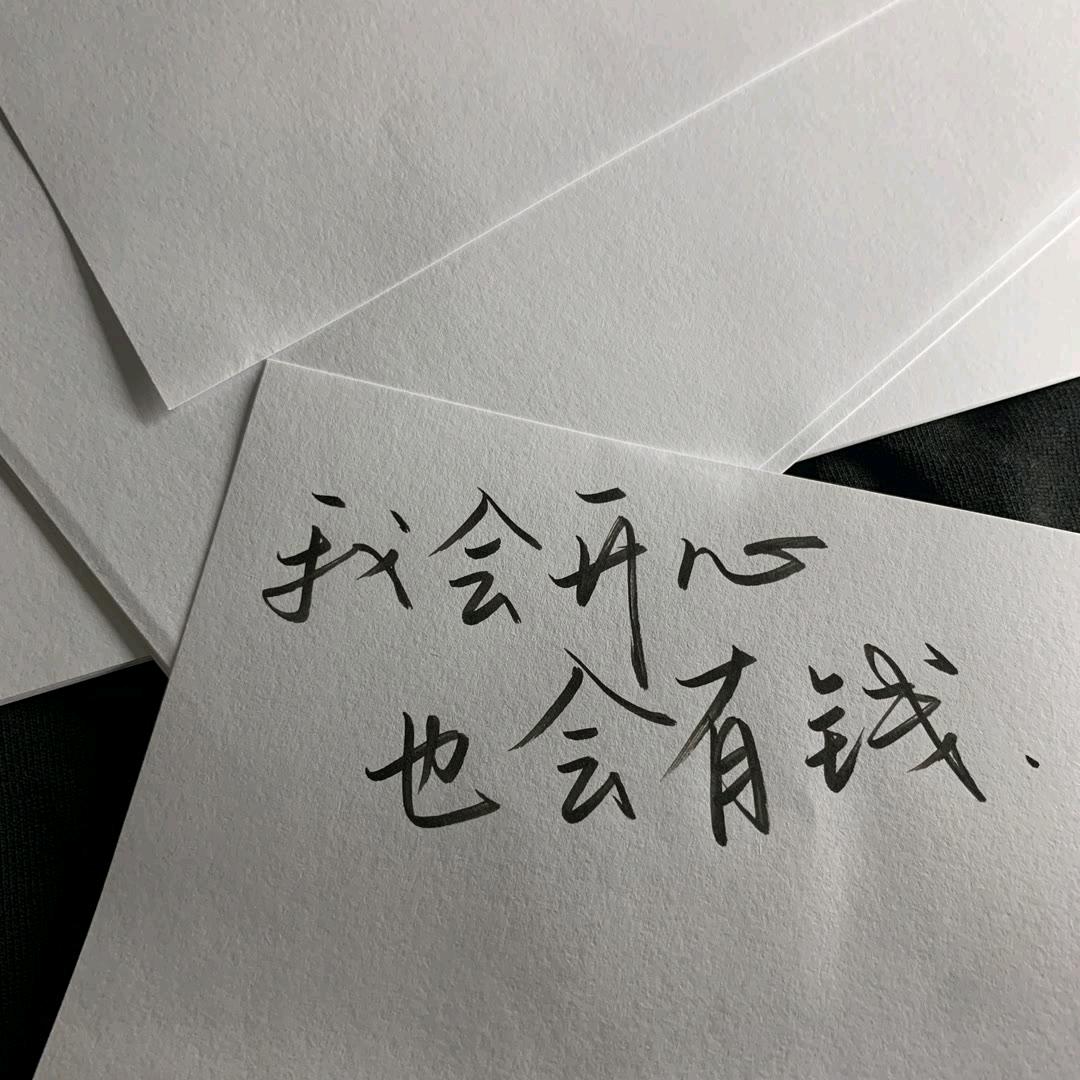 我会开心
也会有钱.